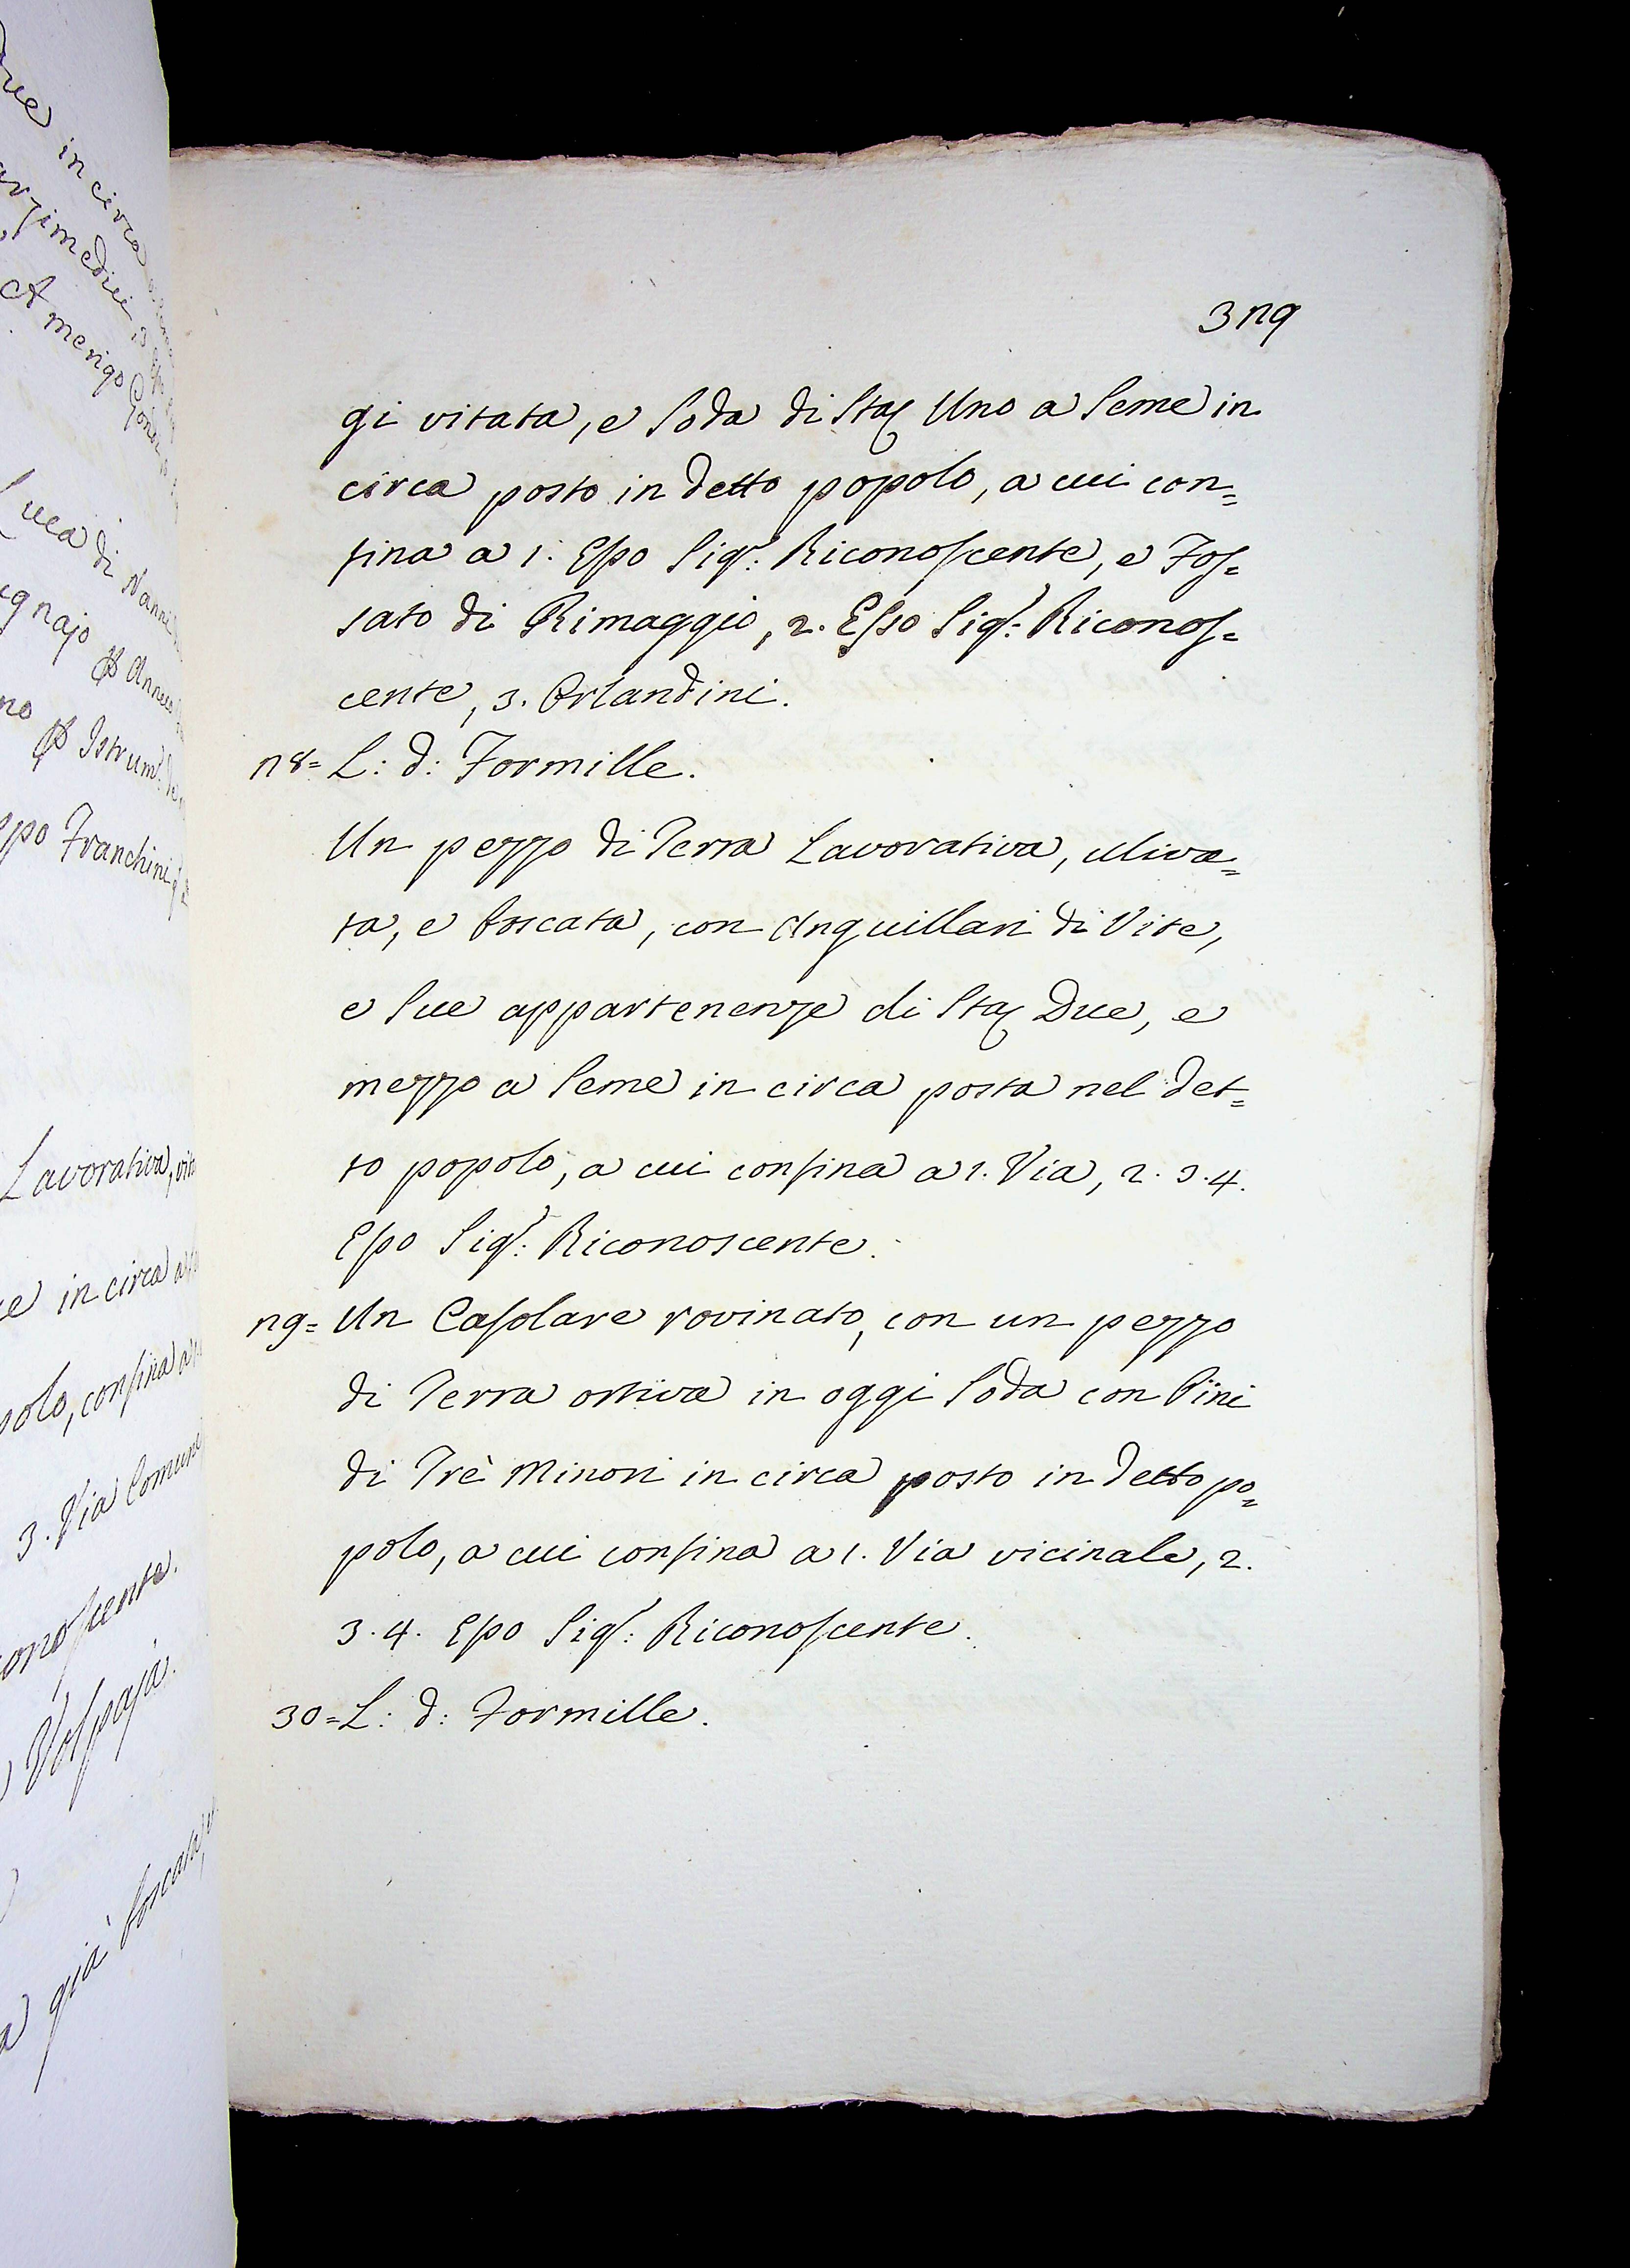 ue in circa
Amerigo
Luca di Nanni
ignajo
no
Istrum.
Epo Franchini
Lavorativa, vit
e in circa a
polo, confina a
3. Via Comune
conoscente.
Volpaja.
a già boscata,
329
gi vitata, e soda di Sta. Uno a seme in
circa posto in detto popolo, a cui con=
fina a 1. Epo Sigr: Riconoscente, e Fos=
sato di Rimaggio, 2. Esso Sigr: Riconos=
cente, 3. Orlandini.
28= L: d: Formille.
Un pezzo di Terra Lavorativa, uliva=
ta, e boscata, con Anguillari di Vite,
e sue appartenenze di Sta. Due, e
mezzo a seme in circa posta nel det=
to popolo, a cui confina a 1. Via, 2. 3. 4.
Epo Sigr: Riconoscente.
29= Un Casolare rovinato, con un pezzo
di Terra ortiva in oggi soda con Pini
di Trè Minori in circa posto in detto po=
polo, a cui confina a 1. Via vicinale, 2.
3. 4. Epo Sigr: Riconoscente.
30= L: d: Formille.